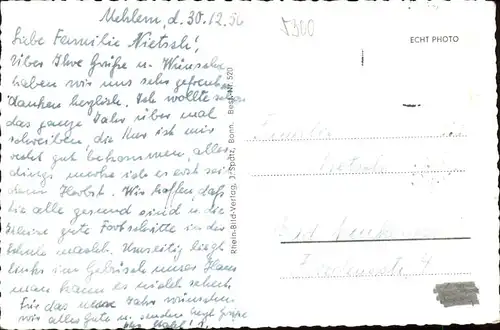 Mehlem, d. 30.12.56
Liebe Familie Nietsch!
Über Ihre Grüße u. Wünsche
haben wir uns sehr gefreut
danken herzlich. Ich wollte schon
das ganze Jahr über mal
schreiben, die Kur ist mir
recht gut bekommen, aller-
dings merke ich es erst seit
dem Herbst. Wir hoffen, daß
Sie alle gesund sind u. die
Kleine gute Fortschritte in der
Schule macht. Umseitig liegt
links im Gebüsch unser Haus
man kann es nicht sehen.
Für das neue Jahr wünschen
wir alles Gute u. senden herzl. Grüße
5300
ECHT PHOTO
Rhein-Bild-Verlag, J. Spultz, Bonn. Best.-Nr. 520
Familie
Nietsch
Bad